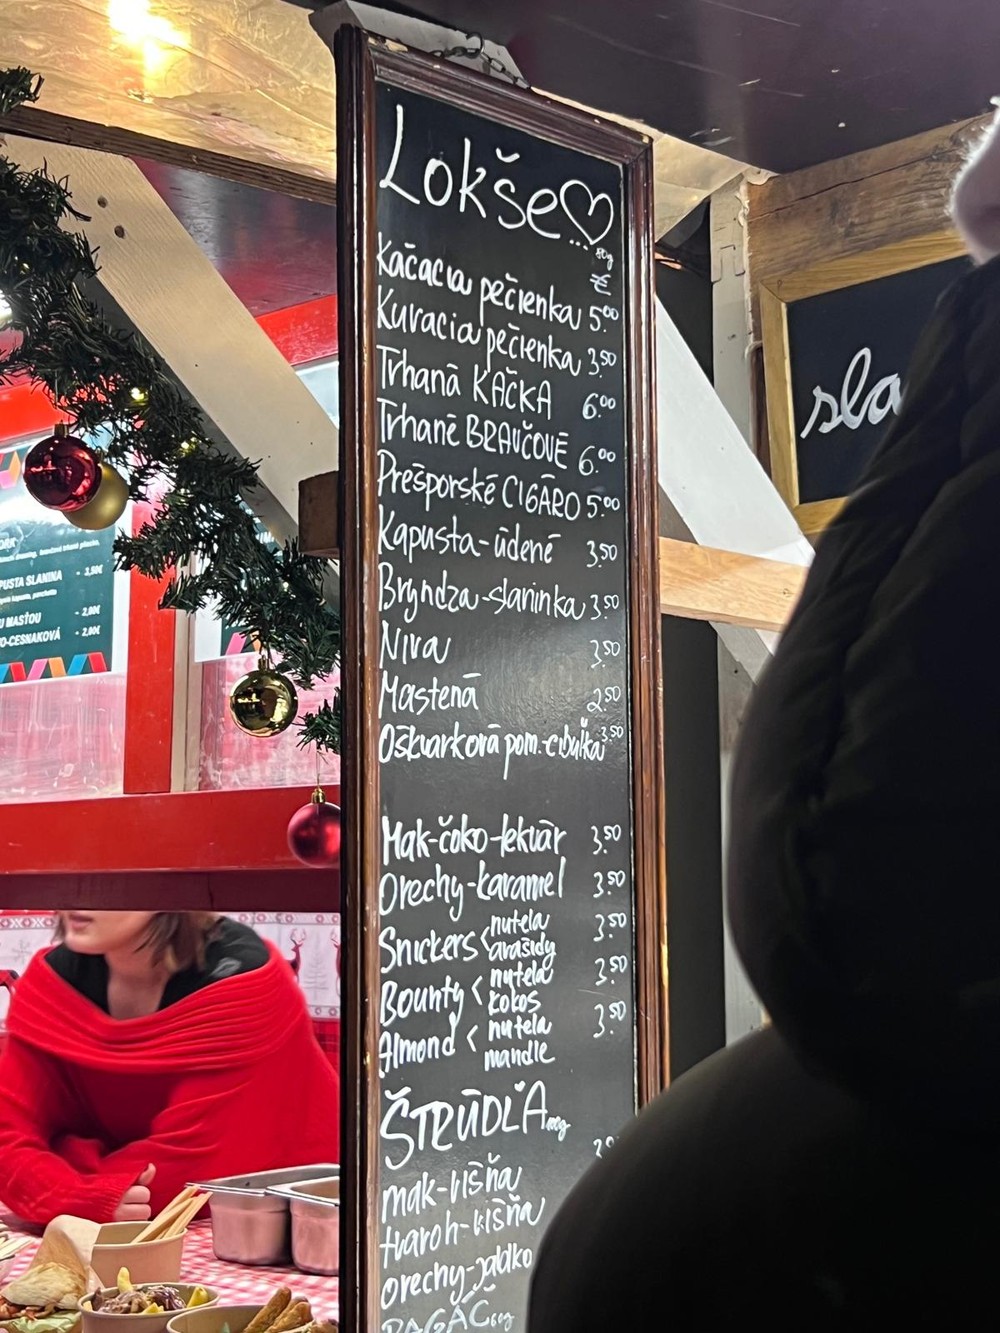 Lokše
€
Kačacia pečienka 5.00
Kuracia pečienka 3.50
Trhaná KAČKA 6.00
Trhané BRAVČOVÉ 6.00
Prešporské CIGÁRO 5.00
Kapusta-údené 3.50
Bryndza-slaninka 3.50
Niva 3.50
Mastená 2.50
Oškvarková pom.-cibuľka 3.50
Mak-čoko-lekvár 3.50
Orechy-karamel 3.50
Snickers < nutela arašidy 3.50
Bounty < nutela kokos 3.50
Almond < nutela mandle 3.50
ŠTRÚDĽA
mak-višňa
tvaroh-višňa
orechy-jablko
PAGÁČ
sla
PUSTA SLANINA - 3,50€
U MASŤOU - 2,00€
O-CESNAKOVÁ - 2,00€